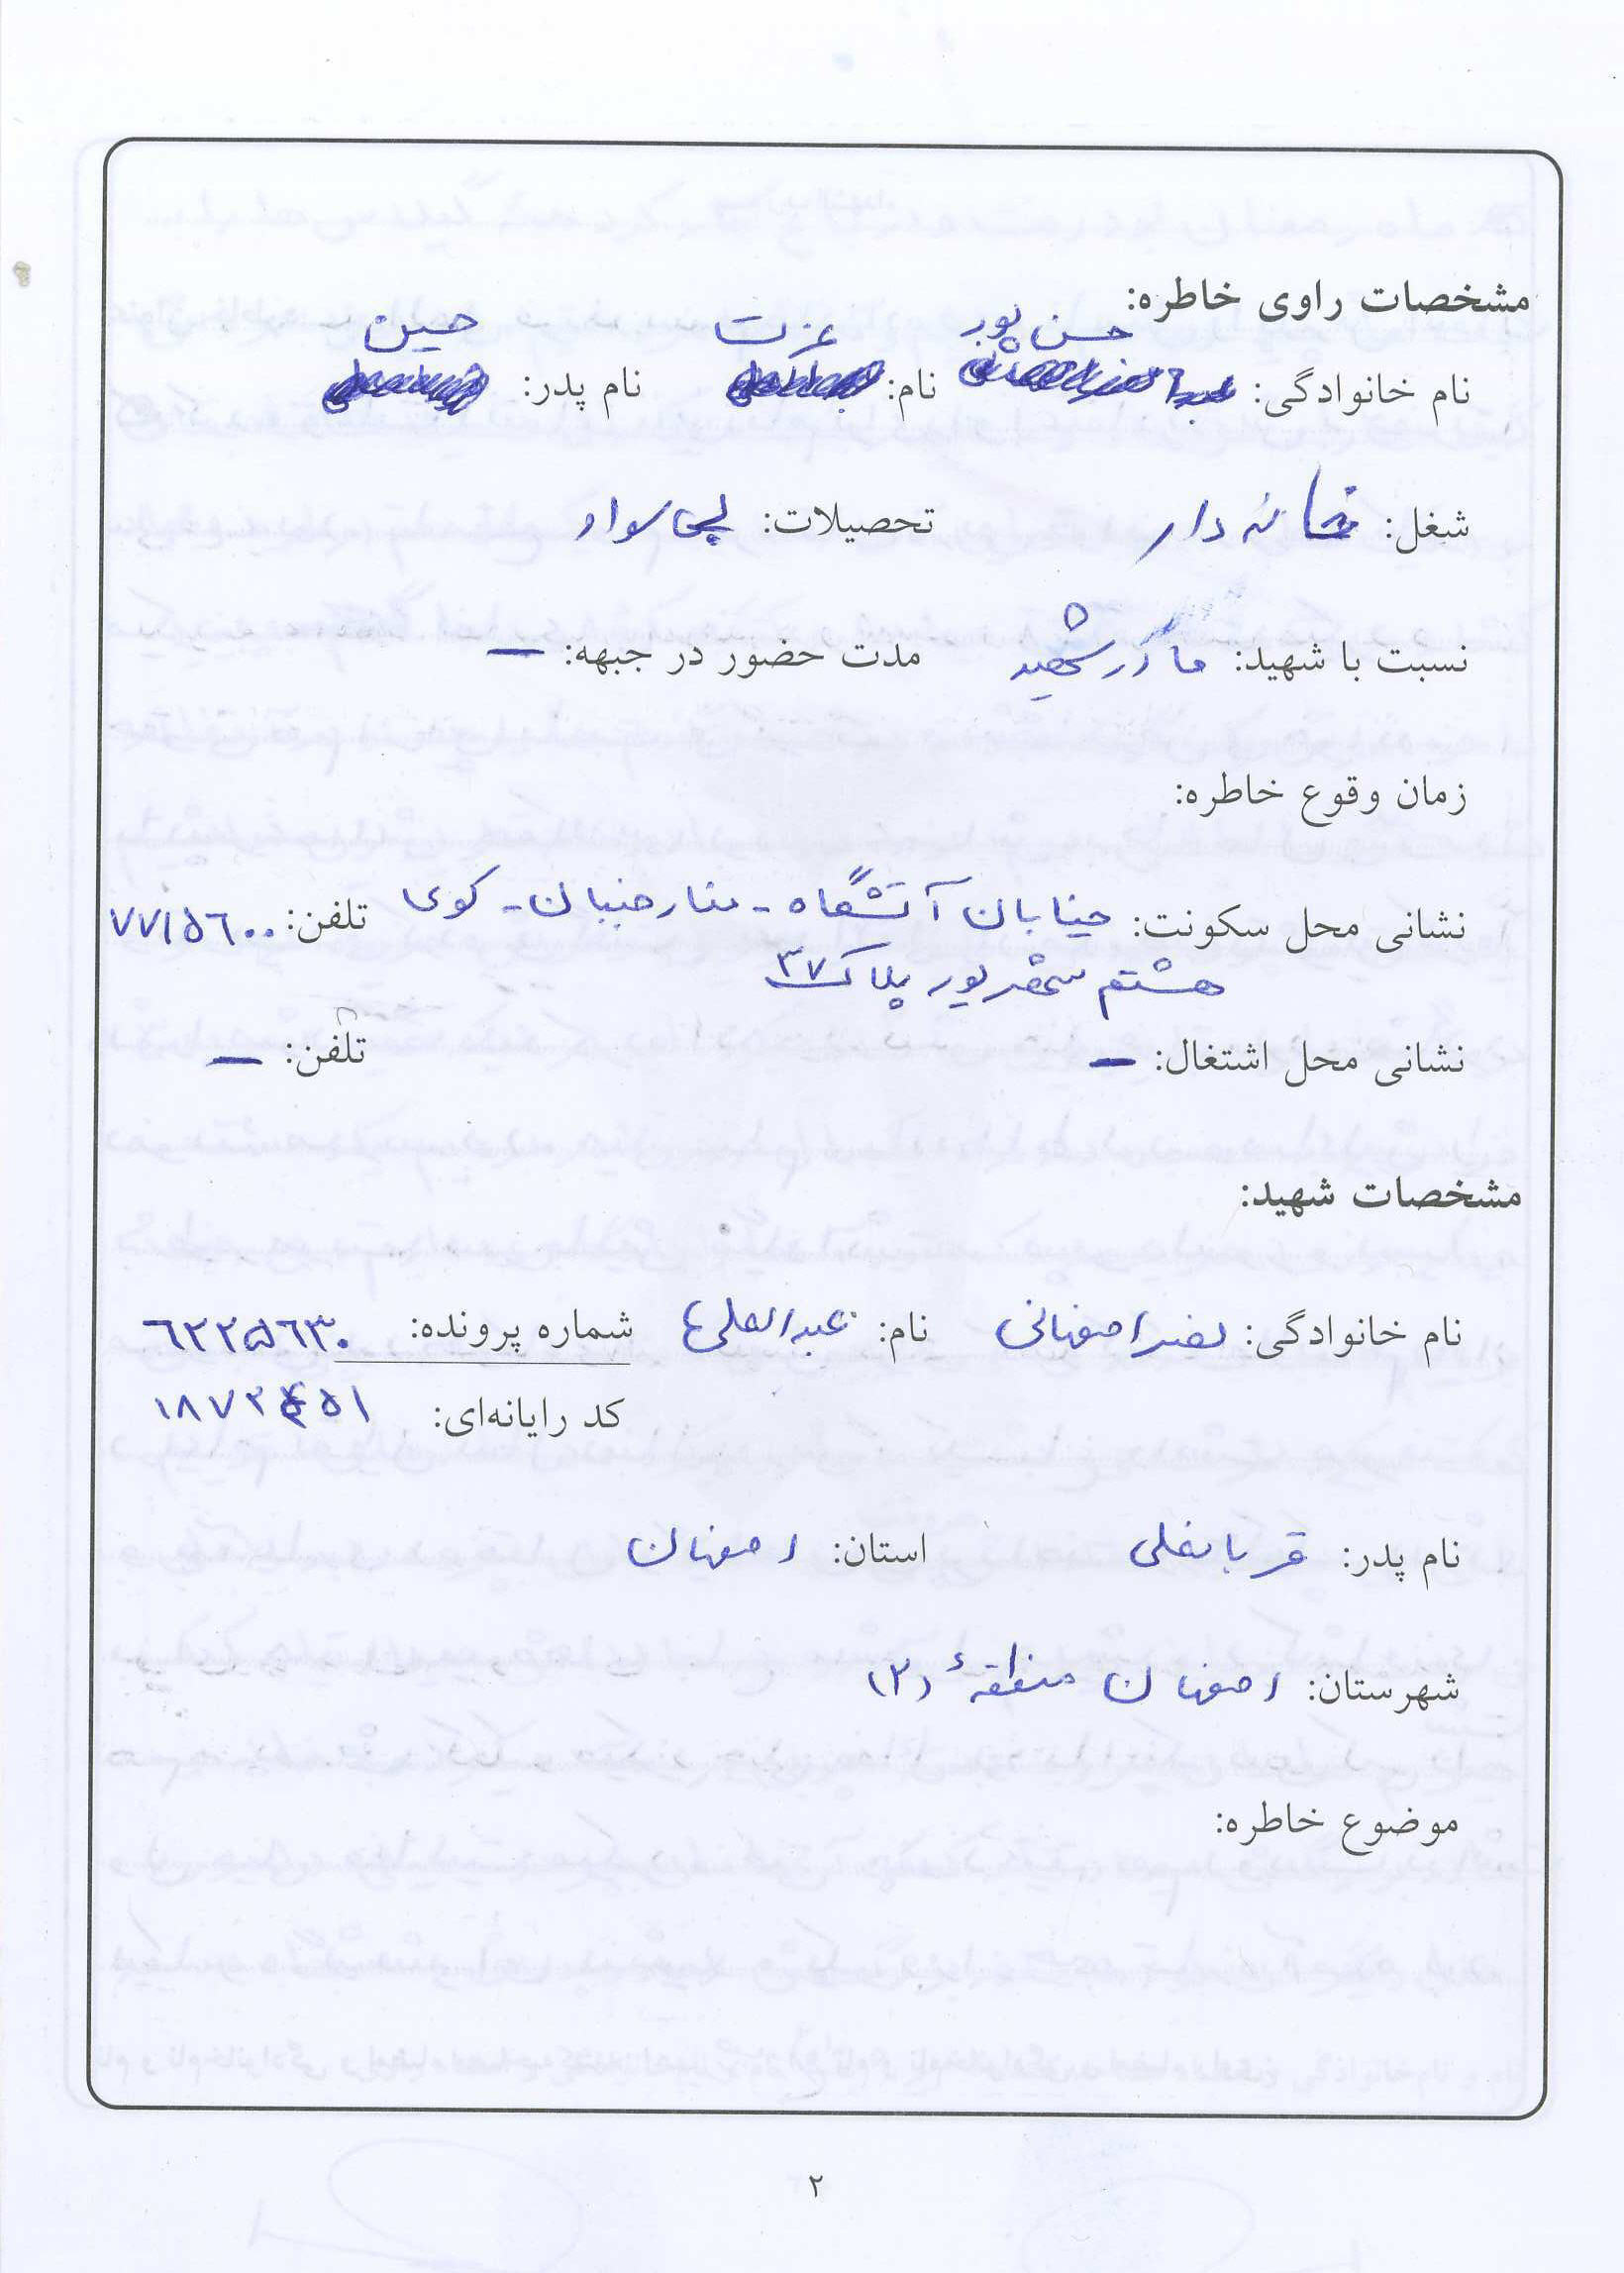 مشخصات راوی خاطره:
نام خانوادگی: حسن پور نام: عزت نام پدر: حسین
شغل: خانه دار تحصیلات: بی سواد
نسبت با شهید: مادر شهید مدت حضور در جبهه: —
زمان وقوع خاطره:
نشانی محل سکونت: خیابان آتشگاه - منارجنبان - کوی تلفن: ۷۷۱۵۶۰۰
هشتم شهریور پلاک ۳۷
نشانی محل اشتغال: — تلفن: —
مشخصات شهید:
نام خانوادگی: نصر اصفهانی نام: عبدالعلی شماره پرونده: ۶۲۲۵۶۳۰
کد رایانه‌ای:
نام پدر: قربانعلی استان: اصفهان
شهرستان: اصفهان منطقهٔ (۲)
موضوع خاطره:
۲